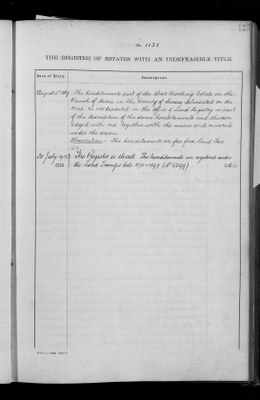 No. 1131
THE REGISTER OF ESTATES WITH AN INDEFEASIBLE TITLE.
Date of Entry. Description.
August 1869 The hereditaments part of the West Worthing Estate in the
Parish of in the County of Sussex delineated on the
Map No deposited in the Office of Land Registry as part
of the description of the same hereditaments and thereon
edged with red Together with the mines and minerals
under the same.
Observation - The hereditaments are free from Land Tax
30 July The Register is closed. The hereditaments are registered under
the Land Transfer Acts 1875 & 1897